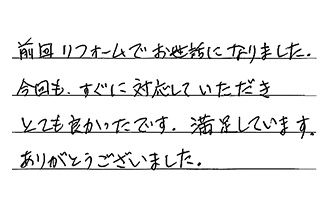 前回リフォームでお世話になりました.
今回も、すぐに対応していただき
とても良かったです. 満足しています.
ありがとうございました.